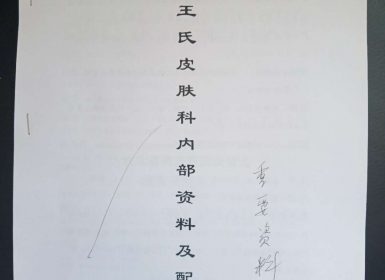 王氏皮肤科内部资料及配
重要资料